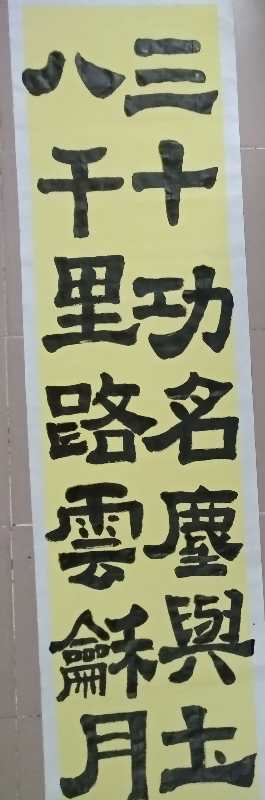 三十功名塵與土
八千里路雲龢月